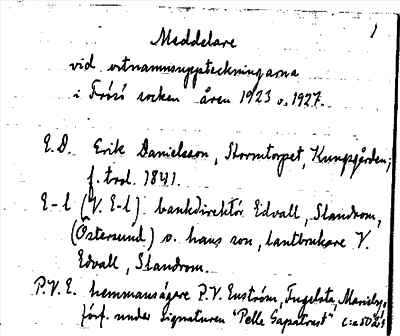 1
Meddelare
vid ortnamnsuppteckningarna
i Frösö socken åren 1923 o. 1927.
E.D. Erik Danielsson, Stormtorpet, Kungsgården;
f. trol. 1841.
E-l (V. E-l) bankdirektör Edvall, Standrom,
(Östersund) o. hans son, lantbrukare V.
Edvall, Standrom.
P.V.E. hemmansägare P.V. Enström, Ingelsta,
förf. under signaturen "Pelle Gapatrust"